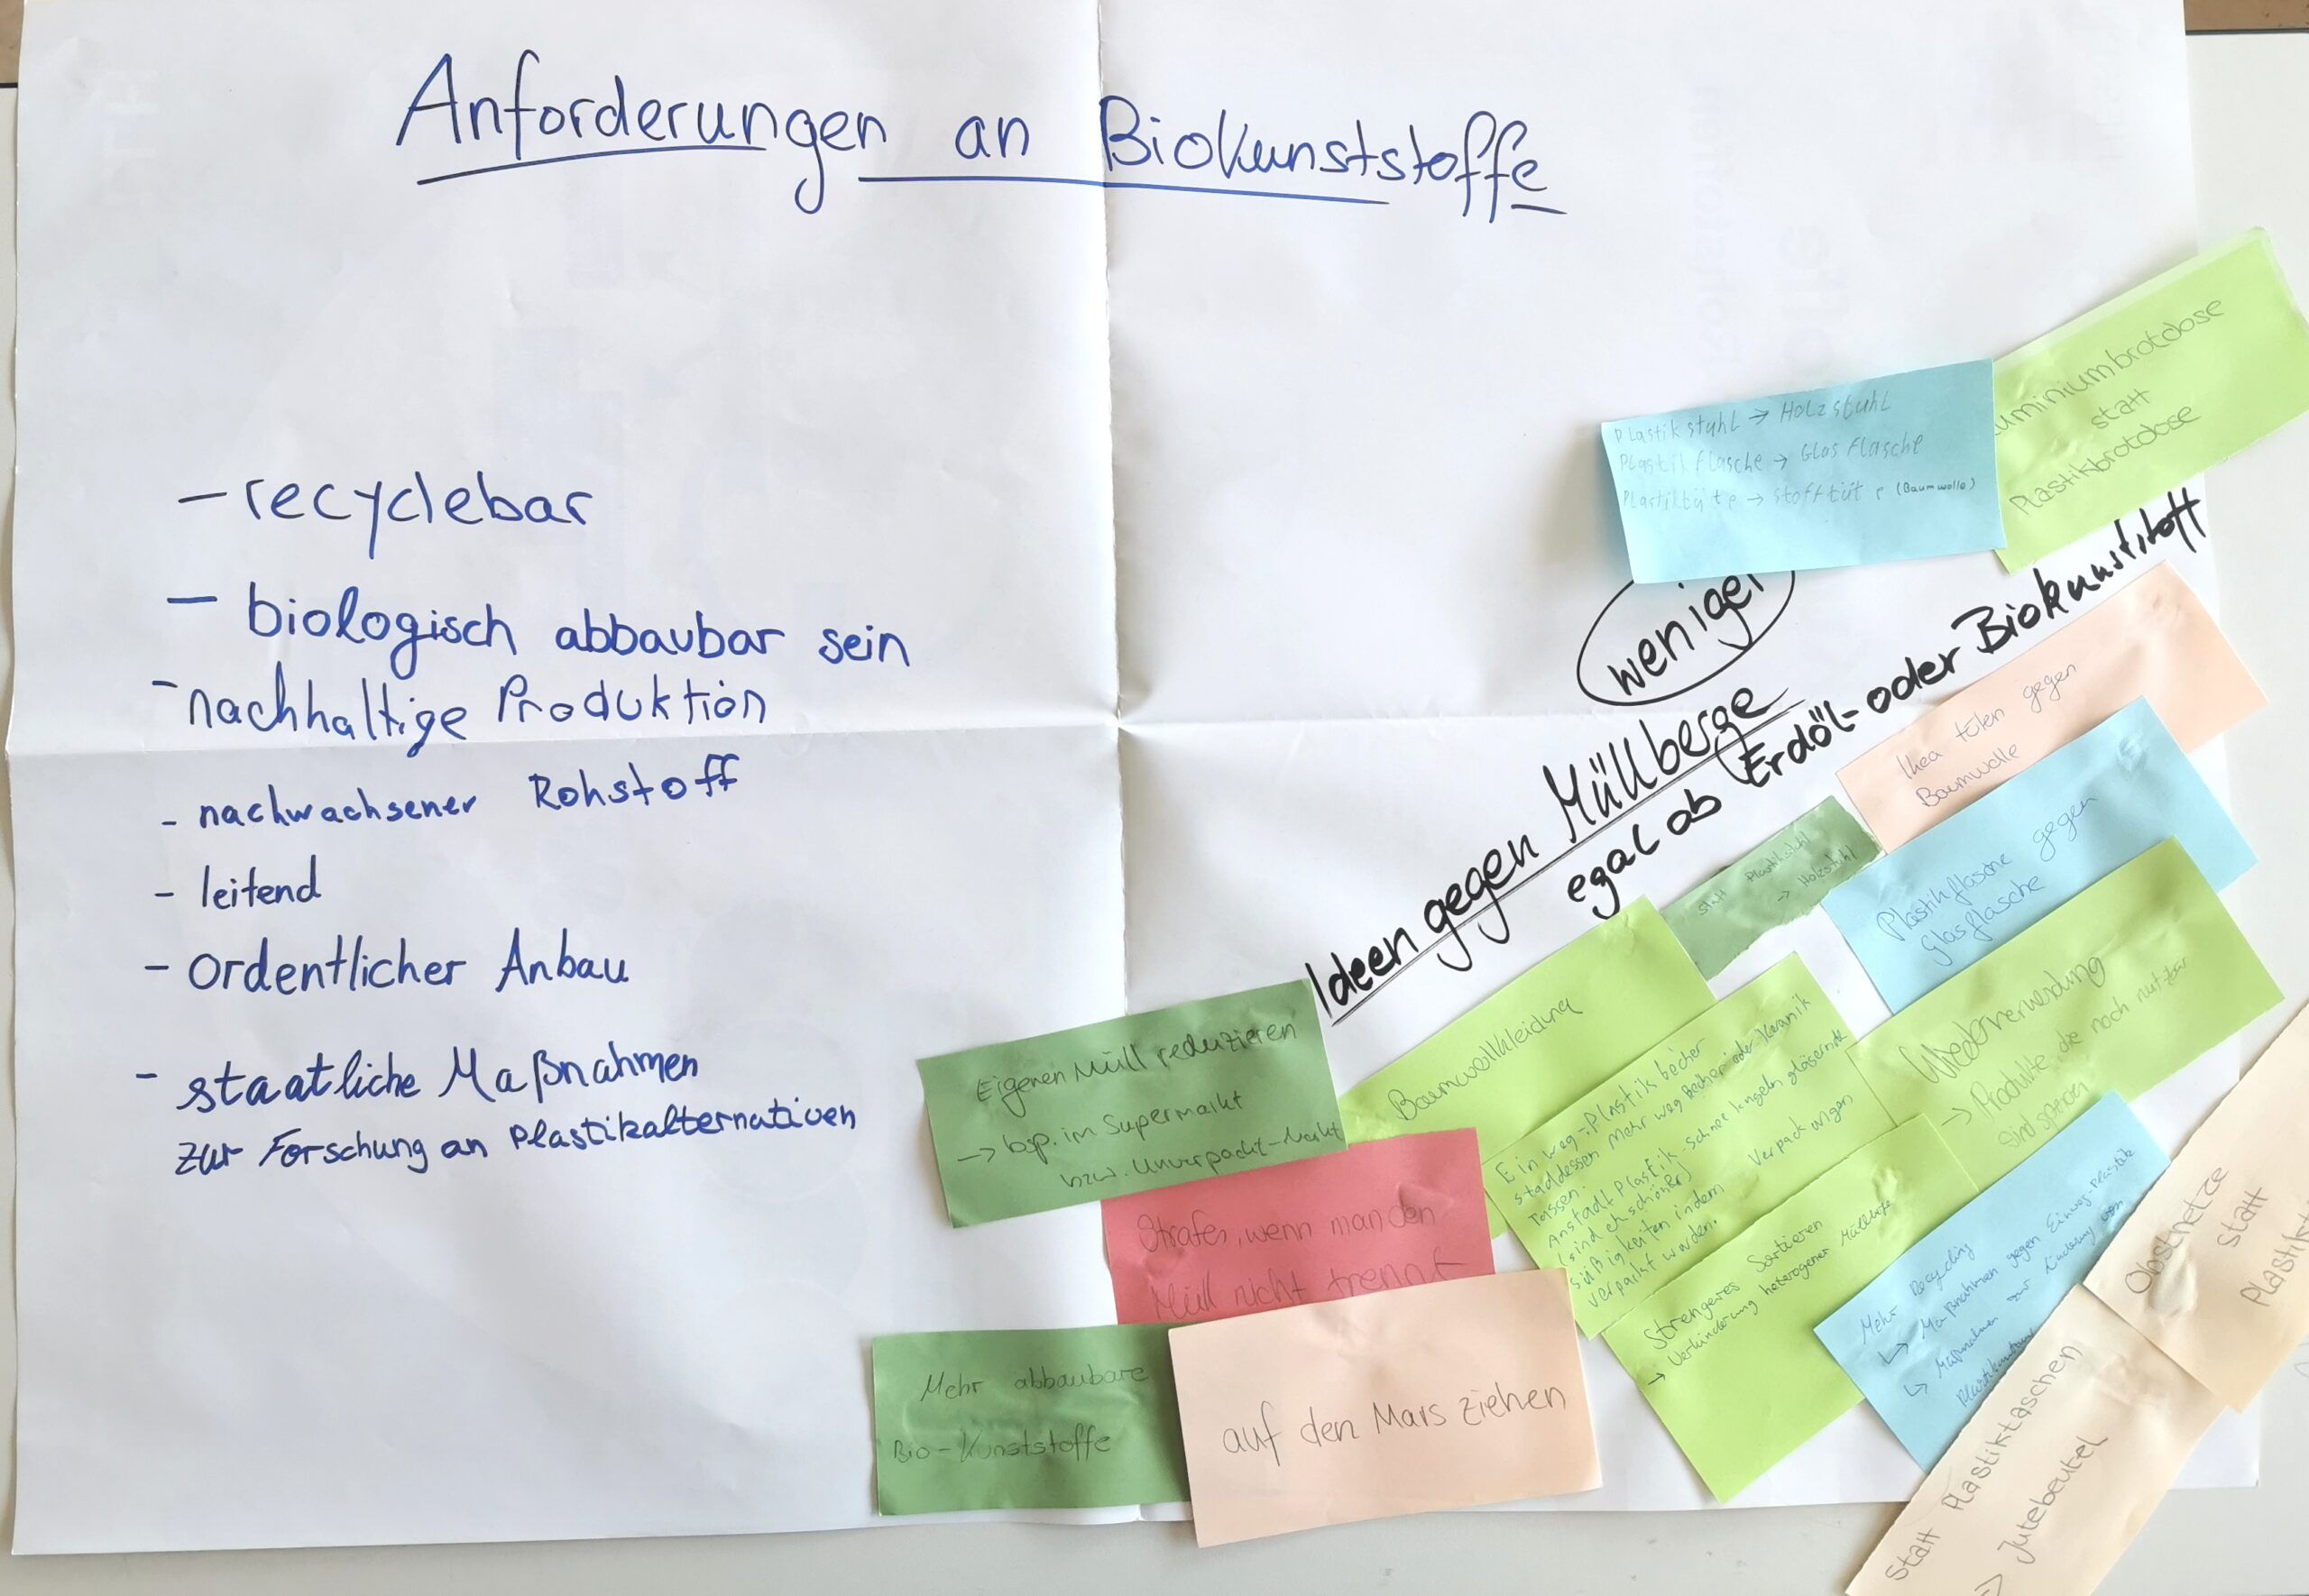 Anforderungen an Biokunststoffe
- recyclebar
- biologisch abbaubar sein
- nachhaltige Produktion
- nachwachsener Rohstoff
- leitend
- ordentlicher Anbau
- staatliche Maßnahmen
zur Forschung an Plastikalternativen
Plastikstuhl → Holzstuhl
Plastikflasche → Glasflasche
Plastiktüte → Stofftüte (Baumwolle)
uminiumbrotdose
statt
Plastikbrotdose
weniger
Ideen gegen Müllberge
egal ob Erdöl- oder Biokunststoff
Ikea tüten gegen
Baumwolle
statt Plastikstuhl
→ Holzstuhl
Plastikflasche gegen
Glasflasche
Baumwollkleidung
Wiederverwendung
→ Produkte, die noch nutzbar
sind
Eigenen Müll reduzieren
→ bsp. im Supermarkt
bzw. Unverpackt-Markt
Einweg-Plastik becher
staddessen Mehrweg Becher oder Keramik
Tassen.
Anstadt Plastik-Schneekugeln gläserne
(sind eh schöner)
Süßigkeiten indem Verpackungen
verpackt werden.
Strafen, wenn man den
Müll nicht trennt
Strengeres Sortieren
→ Verhinderung heterogener Müllberge
Mehr Recycling
↳ Maßnahmen gegen Einweg-Plastik
↳ Maßnahmen zur Linderung von
Obstnetze
statt
Plastik
Mehr abbaubare
Bio-Kunststoffe
auf den Mars ziehen
Statt Plastiktaschen
=> Jutebeutel